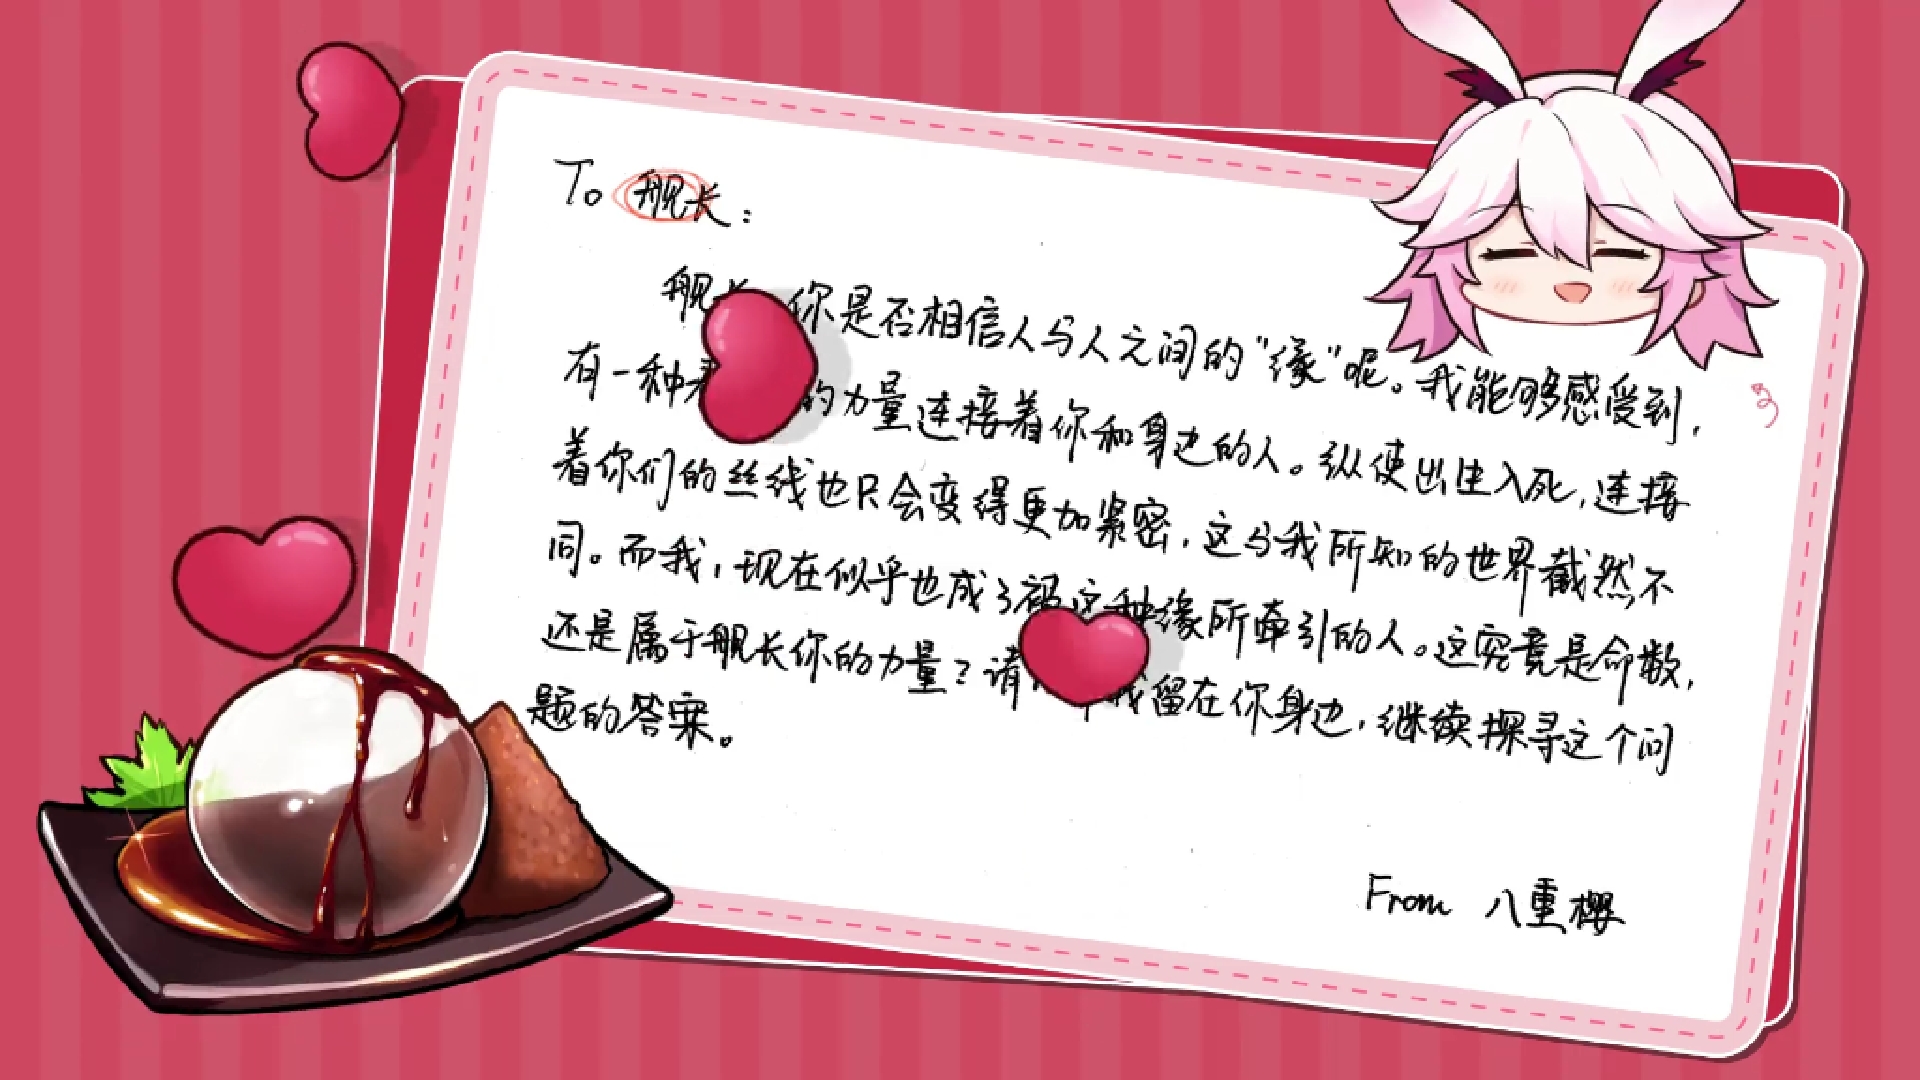 To 舰长：
舰长 你是否相信人与人之间的"缘"呢。我能够感受到，
有一种 的力量连接着你和身边的人。纵使出生入死，连接
着你们的丝线也只会变得更加紧密，这与我所知的世界截然不
同。而我，现在似乎也成了被这种缘所牵引的人。这究竟是命数，
还是属于舰长你的力量？请 我留在你身边，继续探寻这个问
题的答案。
From 八重樱